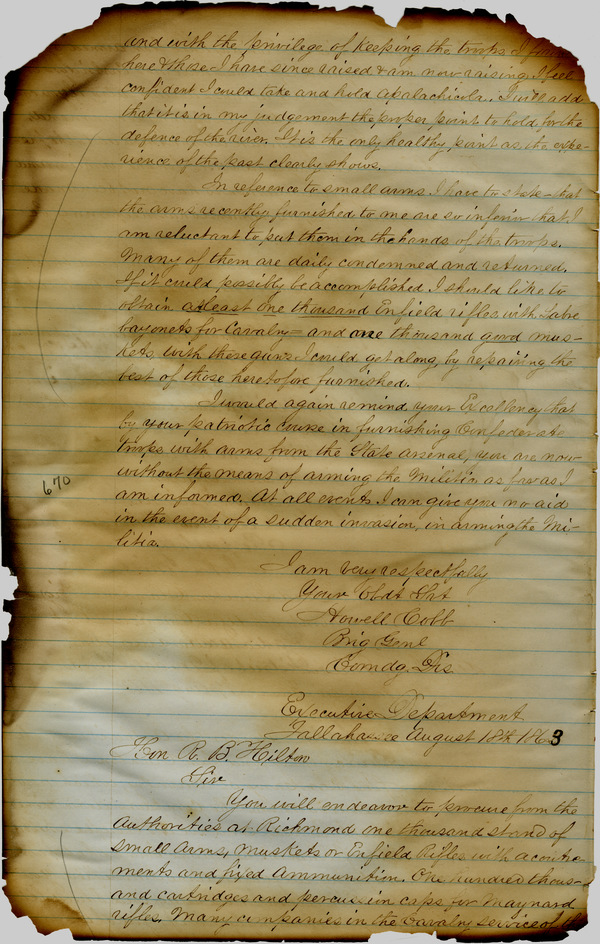 and with the privilege of keeping the troops I
here & those I have since raised & am now raising I feel
confident I could take and hold Apalachicola. I will add
that it is in my judgement the proper point to hold for the
defence of the river. It is the only healthy point as the expe-
rience of the past clearly shows.
In reference to small arms I have to state that
the arms recently furnished to me are so inferior that I
am reluctant to put them in the hands of the troops.
Many of them are daily condemned and returned.
If it could possibly be accomplished I should like to
obtain at least one thousand Enfield rifles with Sabre
bayonets for Cavalry = and one thousand good mus-
kets, with these guns I could get along, by repairing the
best of those heretofore furnished.
I would again remind your Excellency that
by your patriotic course in furnishing Confederate
troops with arms from the State arsenal, you are now
without the means of arming the Militia as far as I
am informed. At all events I can give you no aid
in the event of a sudden invasion, in arming the Mi-
litia.
670
I am very respectfully
Your Obdt Svt
Howell Cobb
Brig Genl
Comdg. Dis.
Executive Department
Tallahassee August 18th 1863
Hon R. B. Hilton
Sir
You will endeavor to procure from the
Authorities at Richmond one thousand stand of
Small Arms, Muskets or Enfield Rifles with acoutre-
ments and fixed Ammunition. One hundred thous-
and cartridges and percussion caps for Maynard
rifles. Many companies in the Cavalry service of